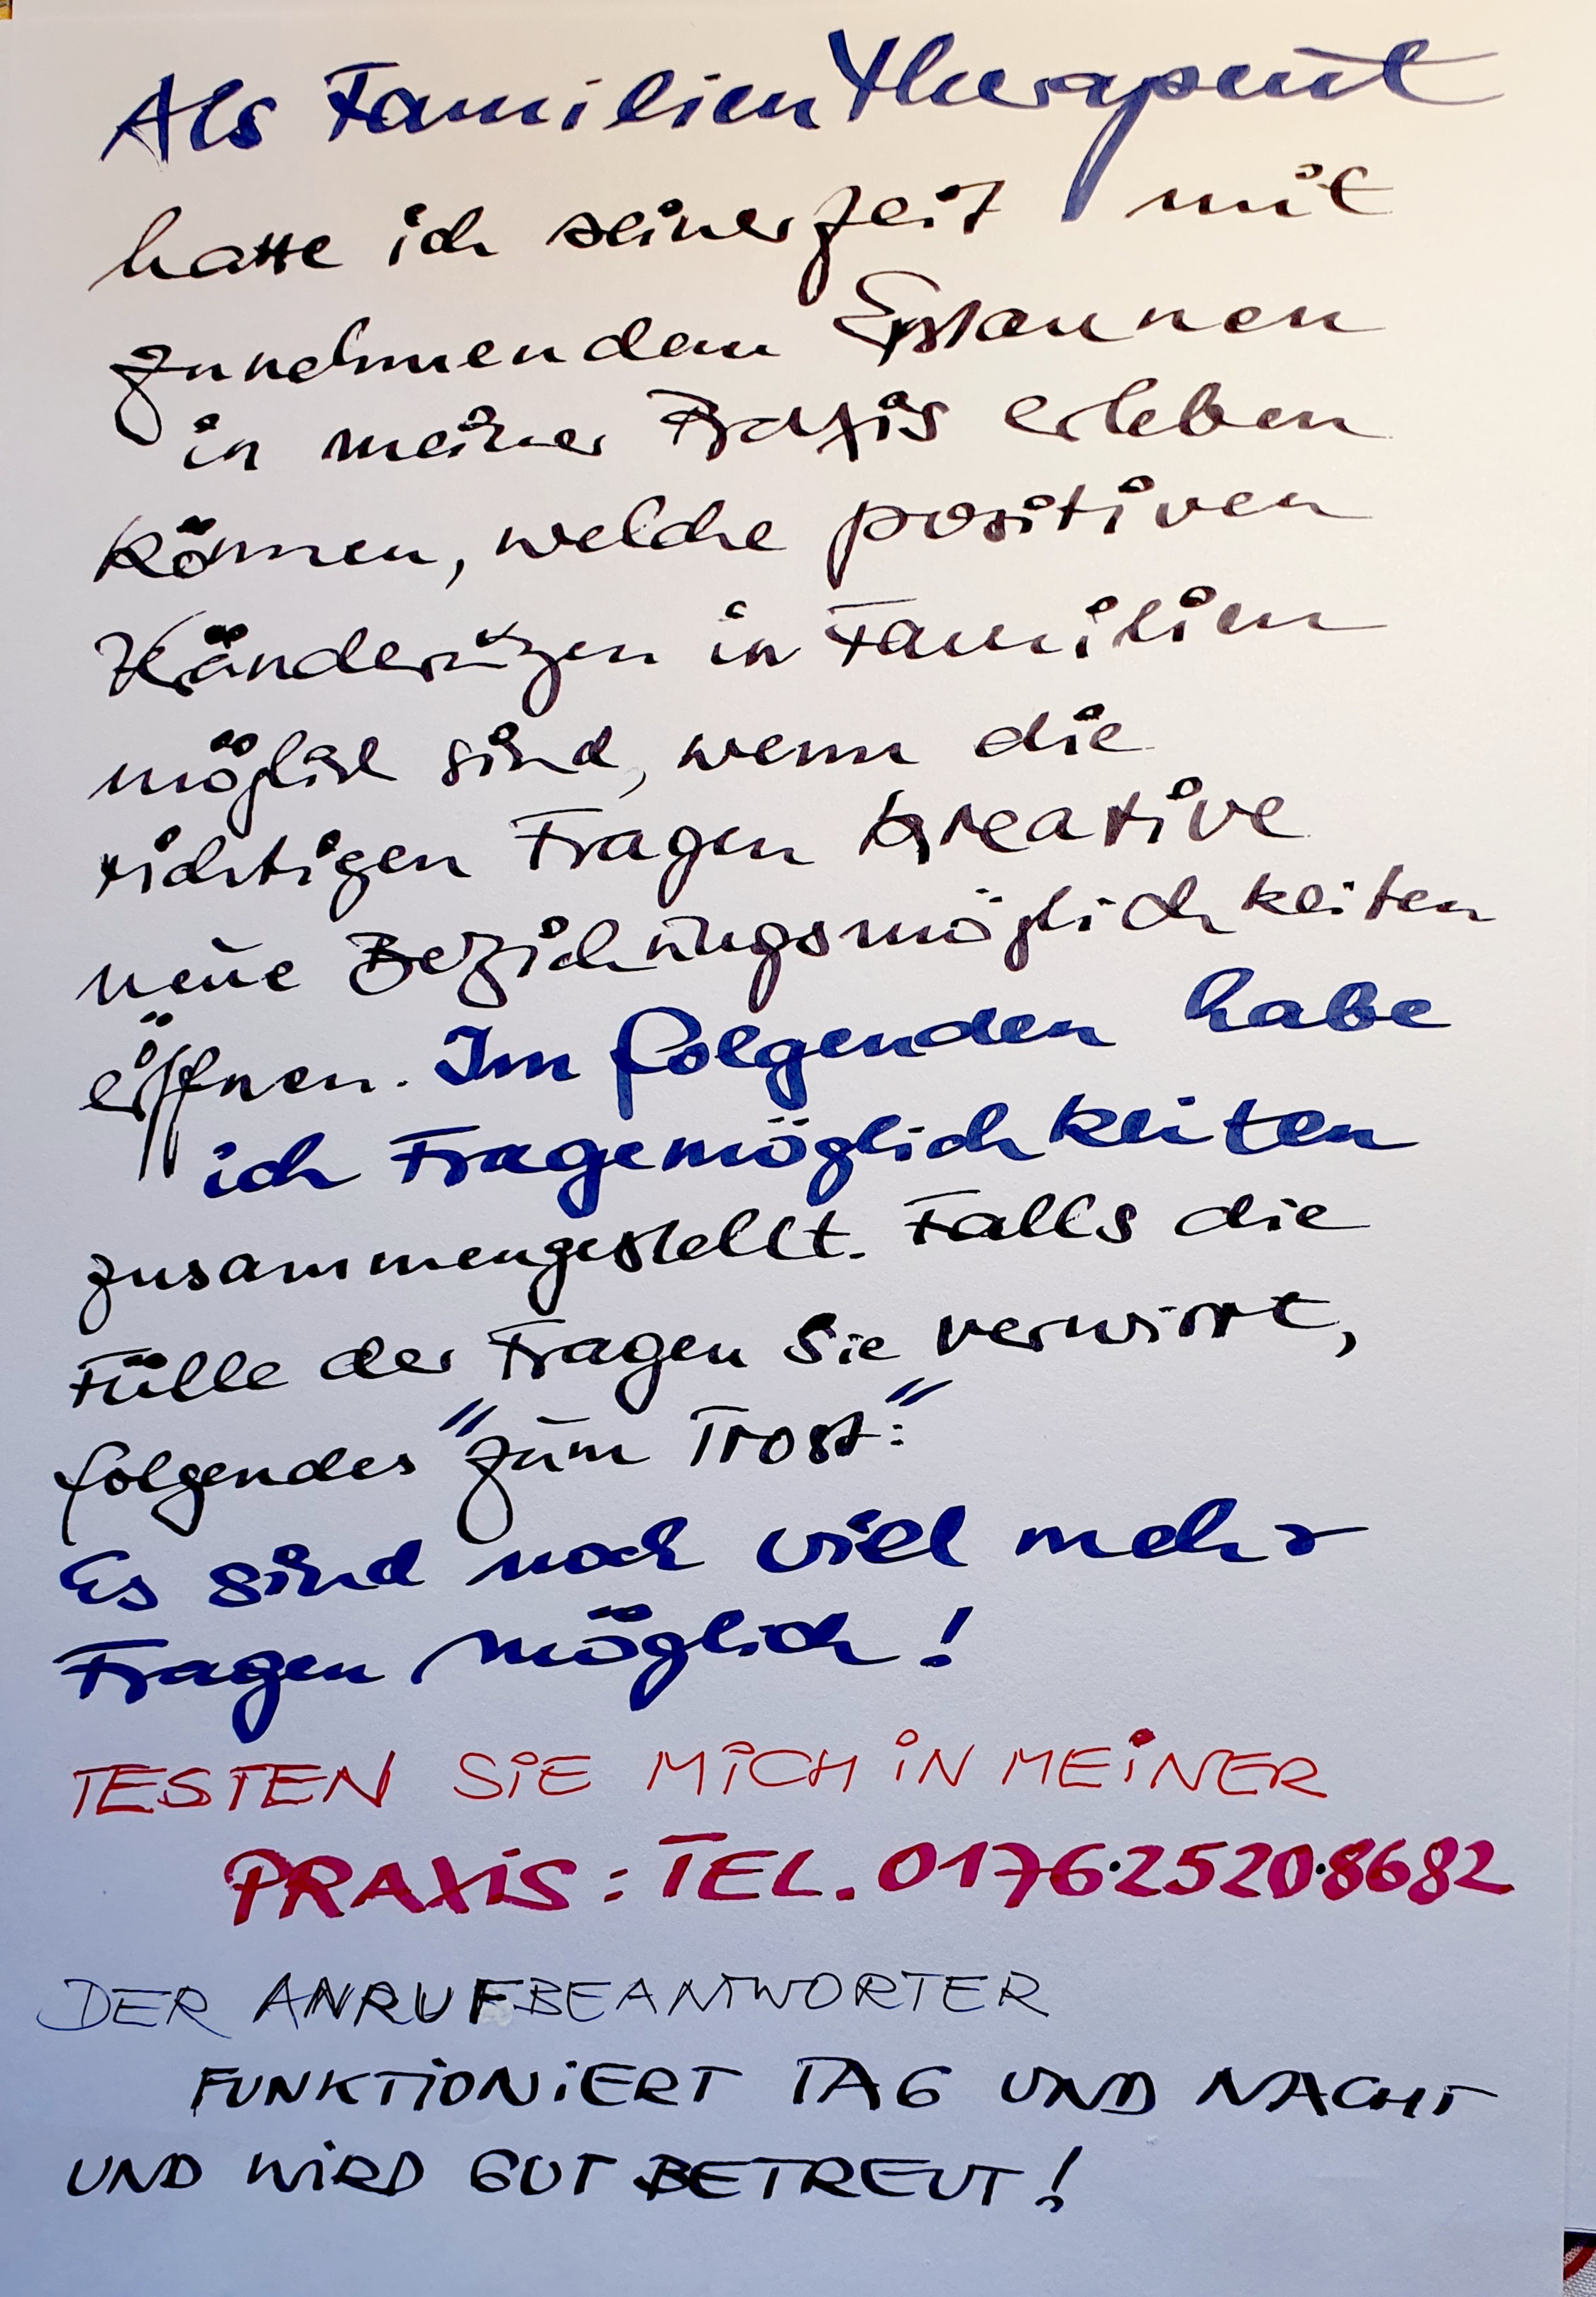 Als Familientherapeut
hatte ich seinerzeit mit
zunehmendem Erstaunen
in meiner Praxis erleben
können, welche positiven
Veränderungen in Familien
möglich sind, wenn die
richtigen Fragen kreative
neue Beziehungsmöglichkeiten
eröffnen. Im folgenden habe
ich Fragemöglichkeiten
zusammengestellt. Falls die
Fülle der Fragen Sie verwirrt,
folgendes "zum Trost:"
Es sind noch viel mehr
Fragen möglich!
TESTEN SiE MiCH iN MEiNER
PRAXiS: TEL. 0176·2520·8682
DER ANRUFBEANTWORTER
FUNKTiONiERT TAG UND NACHT
UND WiRD GUT BETREUT!